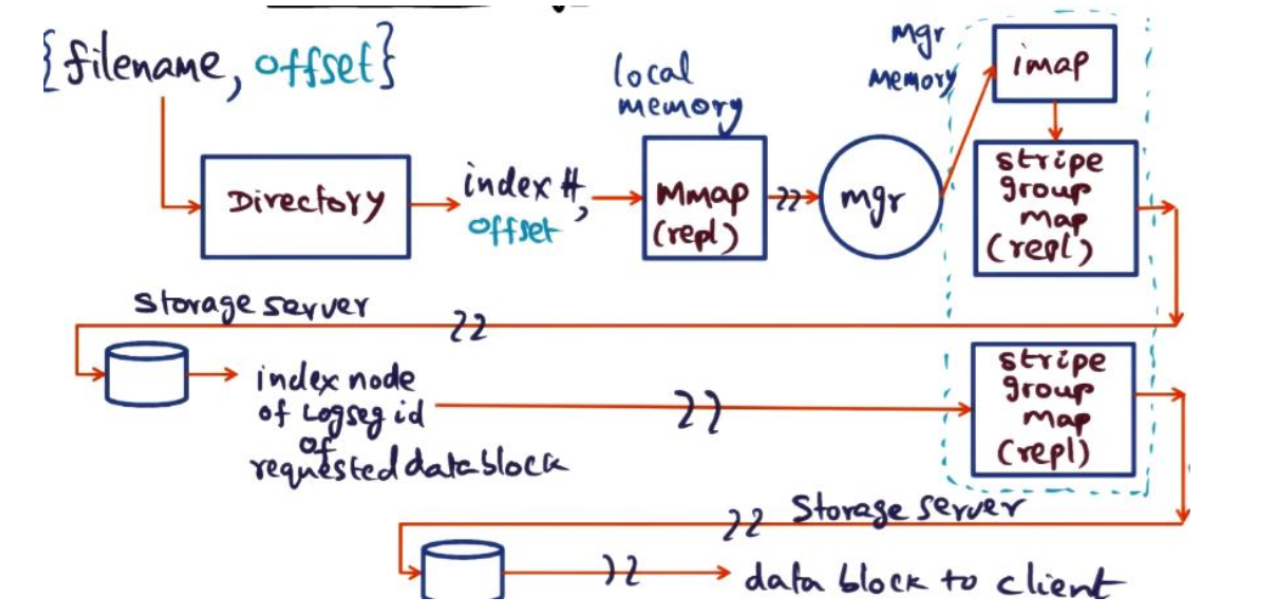 {filename, offset}
Directory
index #,
offset
local
memory
Mmap
(repl)
mgr
mgr
memory
imap
stripe
group
map
(repl)
Storage server
index node
of Logseg id
of
requested data block
stripe
group
map
(repl)
Storage server
data block to client